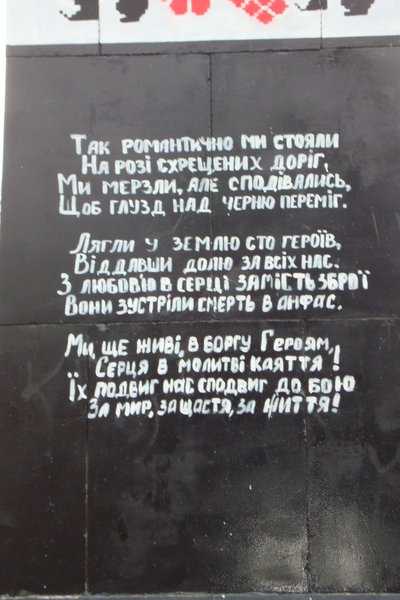 Так романтично ми стояли
На розі схрещених доріг,
Ми мерзли, але сподівались,
Щоб глузд над черню переміг.
Лягли у землю сто героїв,
Віддавши долю за всіх нас.
З любовію в серці замість зброї
Вони зустріли смерть в анфас.
Ми, ще живі, в боргу Героям,
Серця в молитві каяття!
Їх подвиг нас сподвиг до бою
За мир, за щастя, за життя!